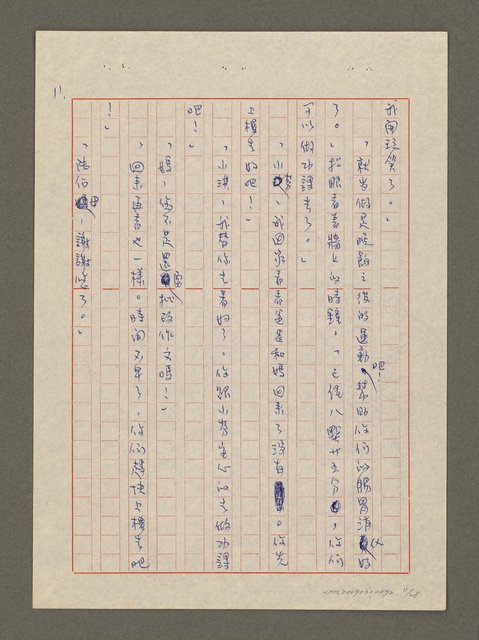 我甭琼笑了。」
「就当做是晚飯之後的運動吧！帮助你们的腸胃消化好
了。」抬眼看着牆上的時鐘。「已經八點廿五分，你们
可以做功課去了。」
「小芬，我回家看看爸爸和媽回來了沒有。你先
上樓去好吧！」
「小琪，我替你去看好了。你跟小芬安心的去做功課
吧！」
「媽，您不是還要批改作文嗎！」
「回來再看也一樣。時间不早了，你们趕快上樓去吧
！」
「陸伯母，謝謝您了。」
11.
NMTL20090320092 11/28